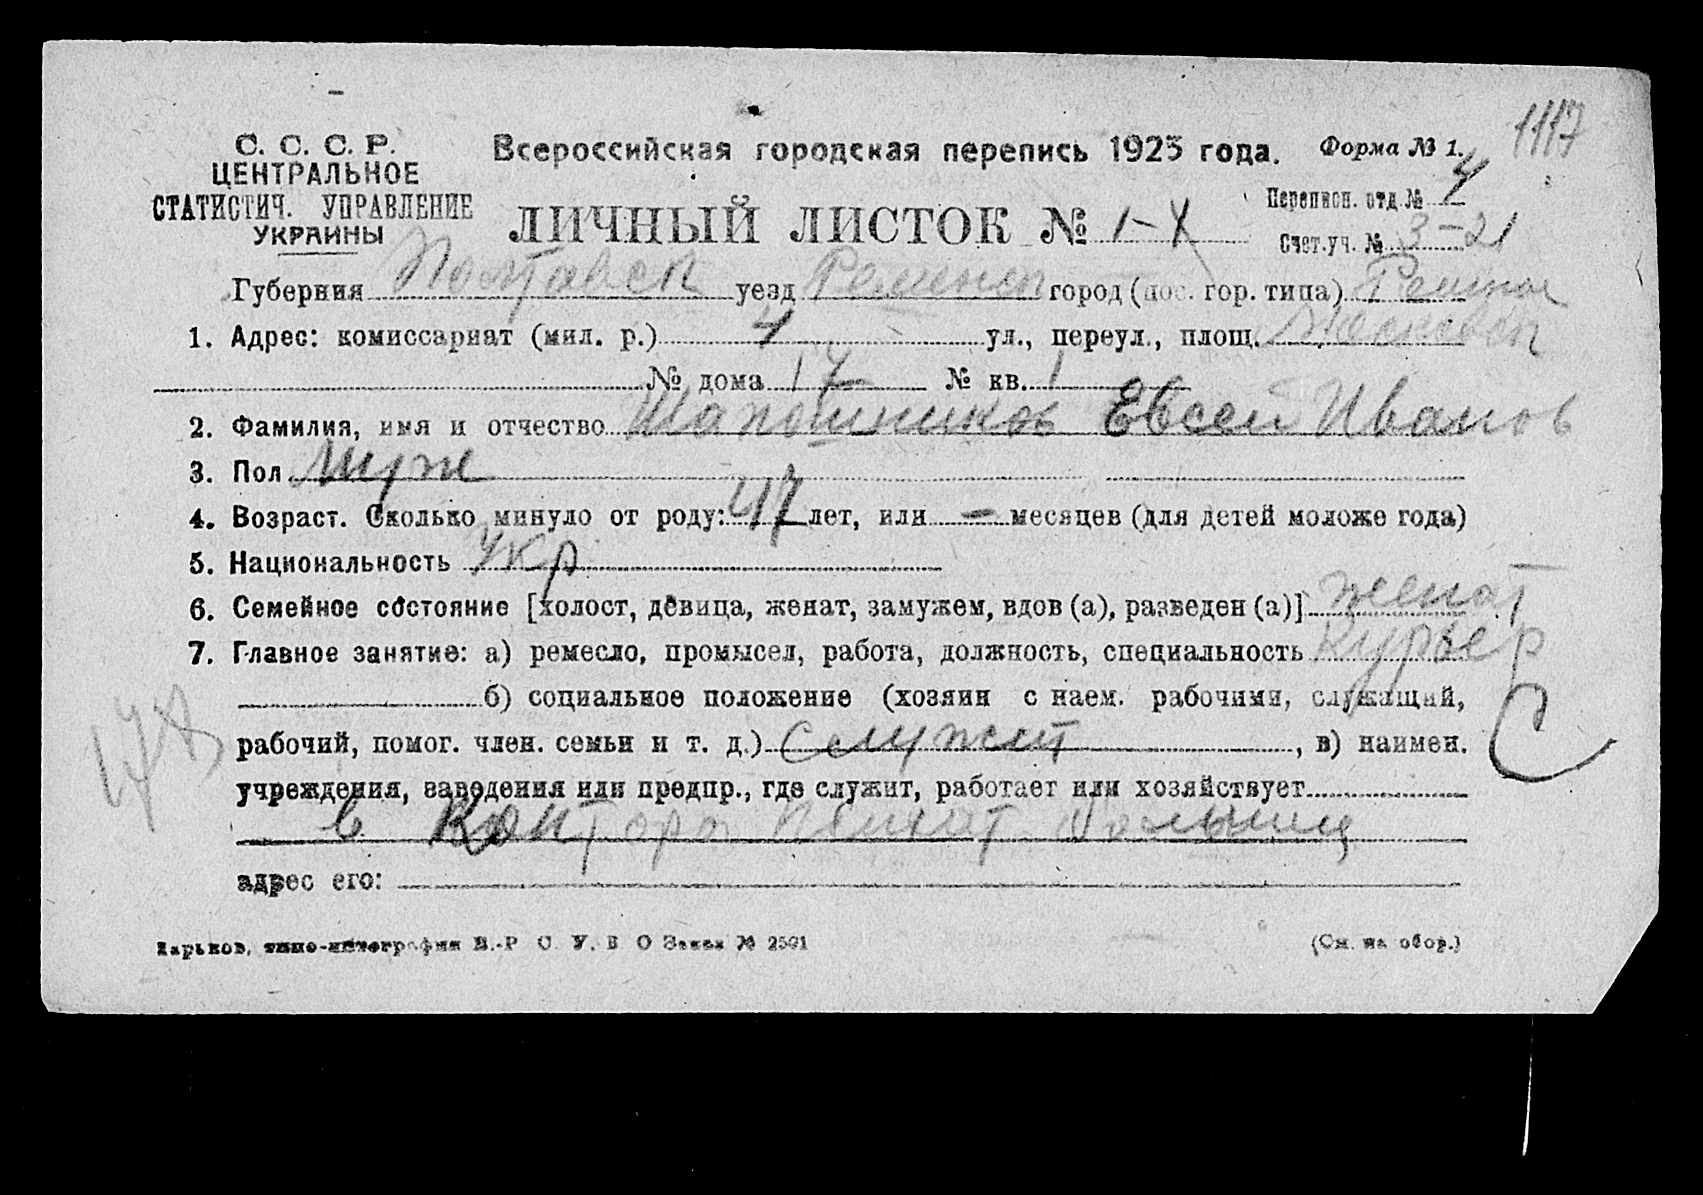 1117
С. С. С. Р.
ЦЕНТРАЛЬНОЕ
СТАТИСТИЧ. УПРАВЛЕНИЕ
УКРАИНЫ
Всероссийская городская перепись 1923 года. Форма № 1.
ЛИЧНЫЙ ЛИСТОК № 1-
Переписн. отд. № 4
Счет. уч. № 3-21
Губерния Полтавск уезд город (пос. гор. типа)
1. Адрес: комиссариат (мил. р.) 4 ул., переул., площ. Московск
№ дома 17 № кв. 1
2. Фамилия, имя и отчество Шапошников Евсей Иванов
3. Пол муж
4. Возраст. Сколько минуло от роду: 47 лет, или — месяцев (для детей моложе года)
5. Национальность Укр
6. Семейное состояние [холост, девица, женат, замужем, вдов (а), разведен (а)] женат
7. Главное занятие: а) ремесло, промысел, работа, должность, специальность Курьер
б) социальное положение (хозяин с наем. рабочими, служащий,
рабочий, помог. член. семьи и т. д.) служит, в) наимен.
С
учреждения, заведения или предпр., где служит, работает или хозяйствует
в больниц
адрес его:
Харьков, типо-литография В.-Р С. У. В О Заказ № 2591
(См. на обор.)